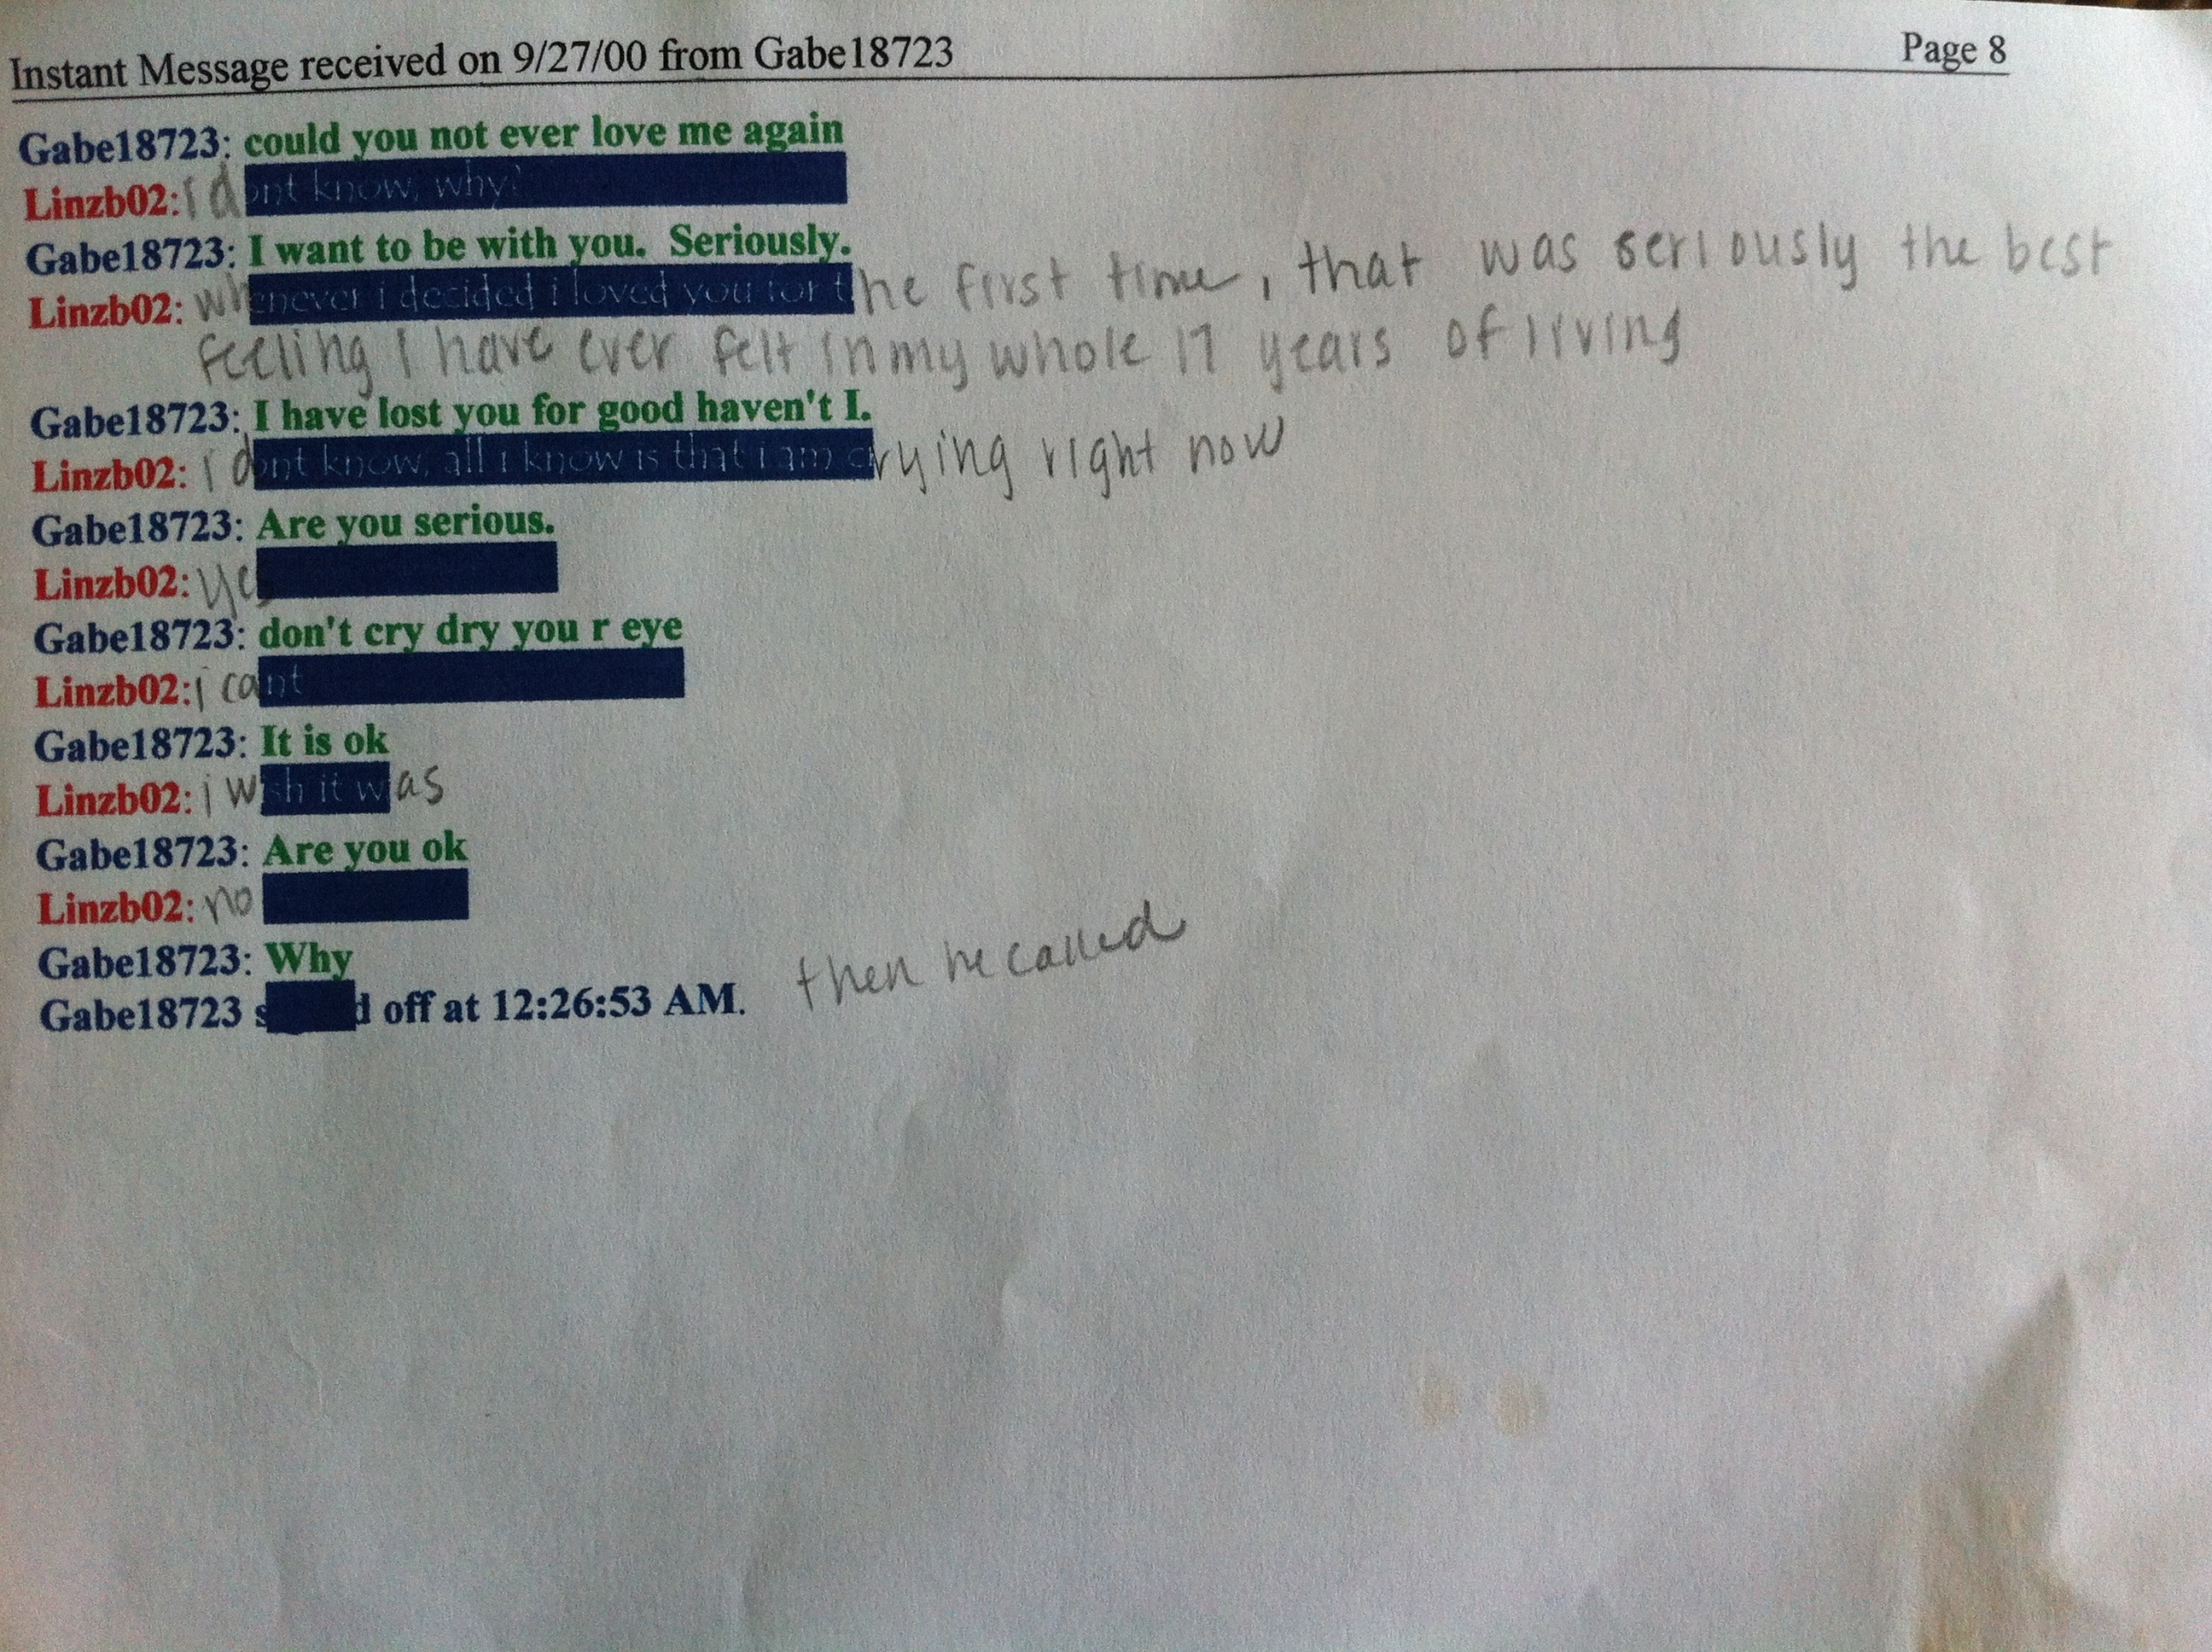 Instant Message received on 9/27/00 from Gabe18723 Page 8
Gabe18723: could you not ever love me again
Linzb02: i dont know, why?
Gabe18723: I want to be with you.  Seriously.
Linzb02: whenever i decided i loved you for the first time, that was seriously the best
feeling I have ever felt in my whole 17 years of living
Gabe18723: I have lost you for good haven't I.
Linzb02: I dont know, all i know is that i am crying right now
Gabe18723: Are you serious.
Linzb02: yes
Gabe18723: don't cry dry you r eye
Linzb02: i cant
Gabe18723: It is ok
Linzb02: i wish it was
Gabe18723: Are you ok
Linzb02: no
Gabe18723: Why
Gabe18723 s d off at 12:26:53 AM. then he called